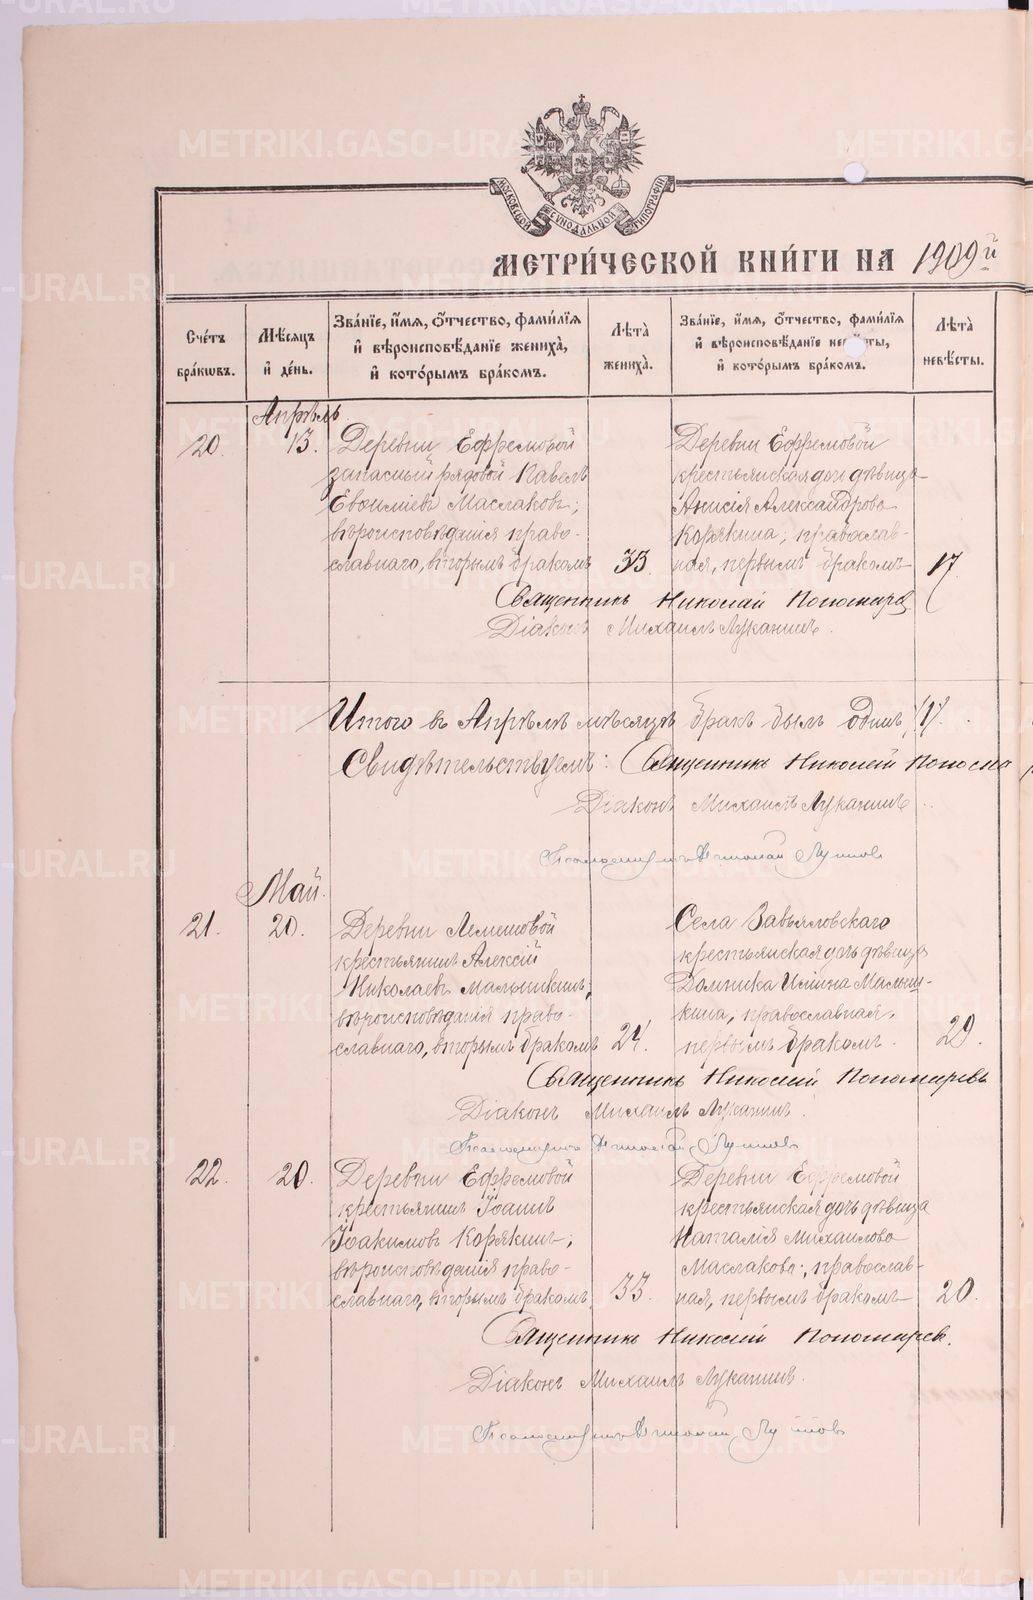 МОСКОВСКОЙ СѴНОДАЛЬНОЙ ТИПОГРАФІИ
МЕТРИ́ЧЕСКОЙ КНИ́ГИ НА 1909й
Сче́тъ бра́кѡвъ.
Мѣ́сяцъ и҆ де́нь.
Зва́нїе, и҆́мѧ, ѻ҆́тчество, фамилїѧ и҆ вѣроисповѣ́данїе жениха̀, и҆ кото́рымъ бра́комъ.
Лѣта̀ жениха̀.
Зва́нїе, и҆́мѧ, ѻ҆́тчество, фамилїѧ и҆ вѣроисповѣ́данїе невѣ́сты, и҆ кото́рымъ бра́комъ.
Лѣта̀ невѣ́сты.
Апрѣль.
20. 13.
Деревни Ефремовой
запасный рядовой Павелъ
Евѳиміевъ Маслаковъ;
вѣроисповѣданія право-
славнаго, вторымъ бракомъ
33.
Деревни Ефремовой
крестьянская дочь дѣвица
Анисія Александрова
Корякина; православ-
ная, первымъ бракомъ
17.
Священникъ Николай Пономарев
Діаконъ Михаилъ Луканинъ.
Итого въ Апрѣлѣ мѣсяцѣ бракъ былъ одинъ /1/.
Свидѣтельствуемъ: Священникъ Николай
Діаконъ Михаилъ Луканинъ
Псаломщикъ
Май.
21. 20.
Деревни Лемешовой
крестьянинъ Алексій
Николаевъ Малышкинъ,
вѣроисповѣданія право-
славнаго, вторымъ бракомъ
24.
Села Завьяловскаго
крестьянская дочь дѣвица
Домника Ильина Малыш-
кина, православная,
первымъ бракомъ.
29.
Священникъ Николай Пономаревъ
Діаконъ Михаилъ Луканинъ.
Псаломщикъ
22. 20.
Деревни Ефремовой
крестьянинъ Іоаннъ
Іоакимовъ Корякинъ;
вѣроисповѣданія право-
славнаго, вторымъ бракомъ,
33.
Деревни Ефремовой
крестьянская дочь дѣвица
Наталія Михаилова
Маслакова, православ-
ная, первымъ бракомъ
20.
Священникъ Николай Пономаревъ.
Діаконъ Михаилъ Луканинъ.
Псаломщикъ
METRIKI.GASO-URAL.RU